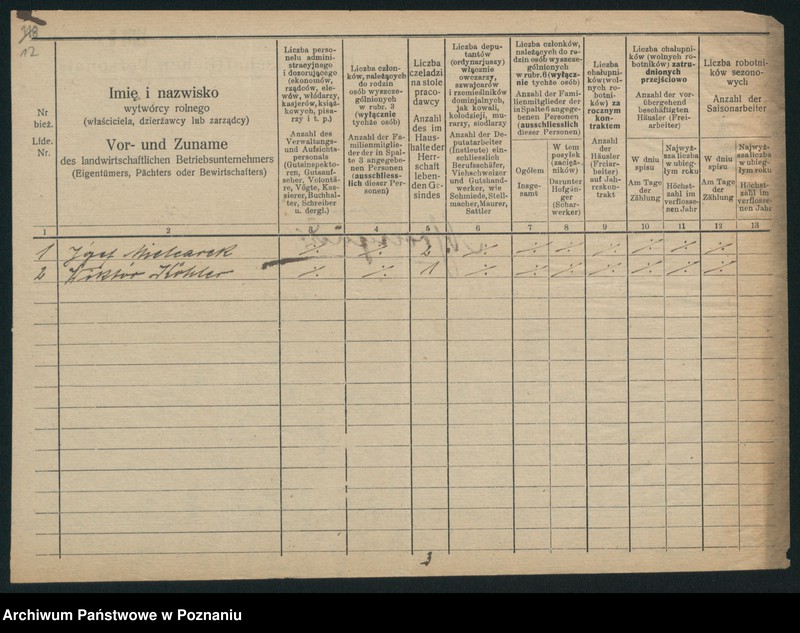 12
Nr
bież.
Lfde.
Nr.
Imię i nazwisko
wytwórcy rolnego
(właściciela, dzierżawcy lub zarządcy)
Vor- und Zuname
des landwirtschaftlichen Betriebsunternehmers
(Eigentümers, Pächters oder Bewirtschafters)
Liczba perso-
nelu admini-
stracyjnego
i dozorującego
(ekonomów,
rządców, ele-
wów, włódarzy,
kasjerów, książ-
kowych, pisa-
rzy i t. p.)
Anzahl des
Verwaltungs-
und Aufsichts-
personals
(Gutsinspekto-
ren, Gutsauf-
seher, Volontä-
re, Vögte, Kas-
sierer, Buchhal-
ter, Schreiber
u. dergl.)
Liczba człon-
ków, należących
do rodzin
osób wyszcze-
gólnionych
w rubr. 3
(wyłącznie
tychże osób)
Anzahl der Fa-
milienmitglie-
der der in Spal-
te 3 angegebe-
nen Personen
(ausschliess-
lich dieser Per-
sonen)
Liczba
czeladzi
na stole
praco-
dawcy
Anzahl
des im
Haus-
halte der
Herr-
schaft
leben-
den Ge-
sindes
Liczba depu-
tantów
(ordynarjuszy)
włącznie
owczarzy,
szwajcarów
i rzemieślników
dominjalnych,
jak kowali,
kołodzieji, mu-
rarzy, siodlarzy
Anzahl der De-
putatarbeiter
(Instleute) ein-
schliesslich
Berufsschäfer,
Viehschweizer
und Gutshand-
werker, wie
Schmiede, Stell-
macher, Maurer,
Sattler
Liczba członków,
należących do ro-
dzin osób wyszcze-
gólnionych
w rubr. 6 (wyłącz-
nie tychże osób)
Anzahl der Fami-
lienmitglieder der
in Spalte 6 angege-
benen Personen
(ausschliesslich
dieser Personen)
Ogółem
Insge-
samt
W tem
posyłek
(zaciężż-
ników)
Darunter
Hofgän-
ger
(Schar-
werker)
Liczba
chałup-
ników(wol-
nych ro-
botni-
ków) za
rocznym
kon-
traktem
Anzahl
der
Häusler
(Freiar-
beiter)
auf Jah-
reskon-
trakt
Liczba chałupni-
ków (wolnych ro-
botników) zatru-
dnionych
przejściowo
Anzahl der vor-
übergehend
beschäftigten
Häusler (Frei-
arbeiter)
W dniu
spisu
Am Tage
der
Zählung
Najwyż-
sza liczba
w ubieg-
łym roku
Höchst-
zahl im
verflosse-
nen Jahr
Liczba robotni-
ków sezono-
wych
Anzahl der
Saisonarbeiter
W dniu
spisu
Am Tage
der
Zählung
Najwyż-
sza liczba
w ubieg-
łym roku
Höchst-
zahl im
verflosse-
nen Jahr
1 2 3 4 5 6 7 8 9 10 11 12 13
1 Józef Mielcarek ./. ./. 2 ./. ./. ./. ./. ./. ./. ./.
2 Wiktór Köhler ./. ./. 1 ./. ./. ./. ./. ./. ./. ./.
3
Archiwum Państwowe w Poznaniu